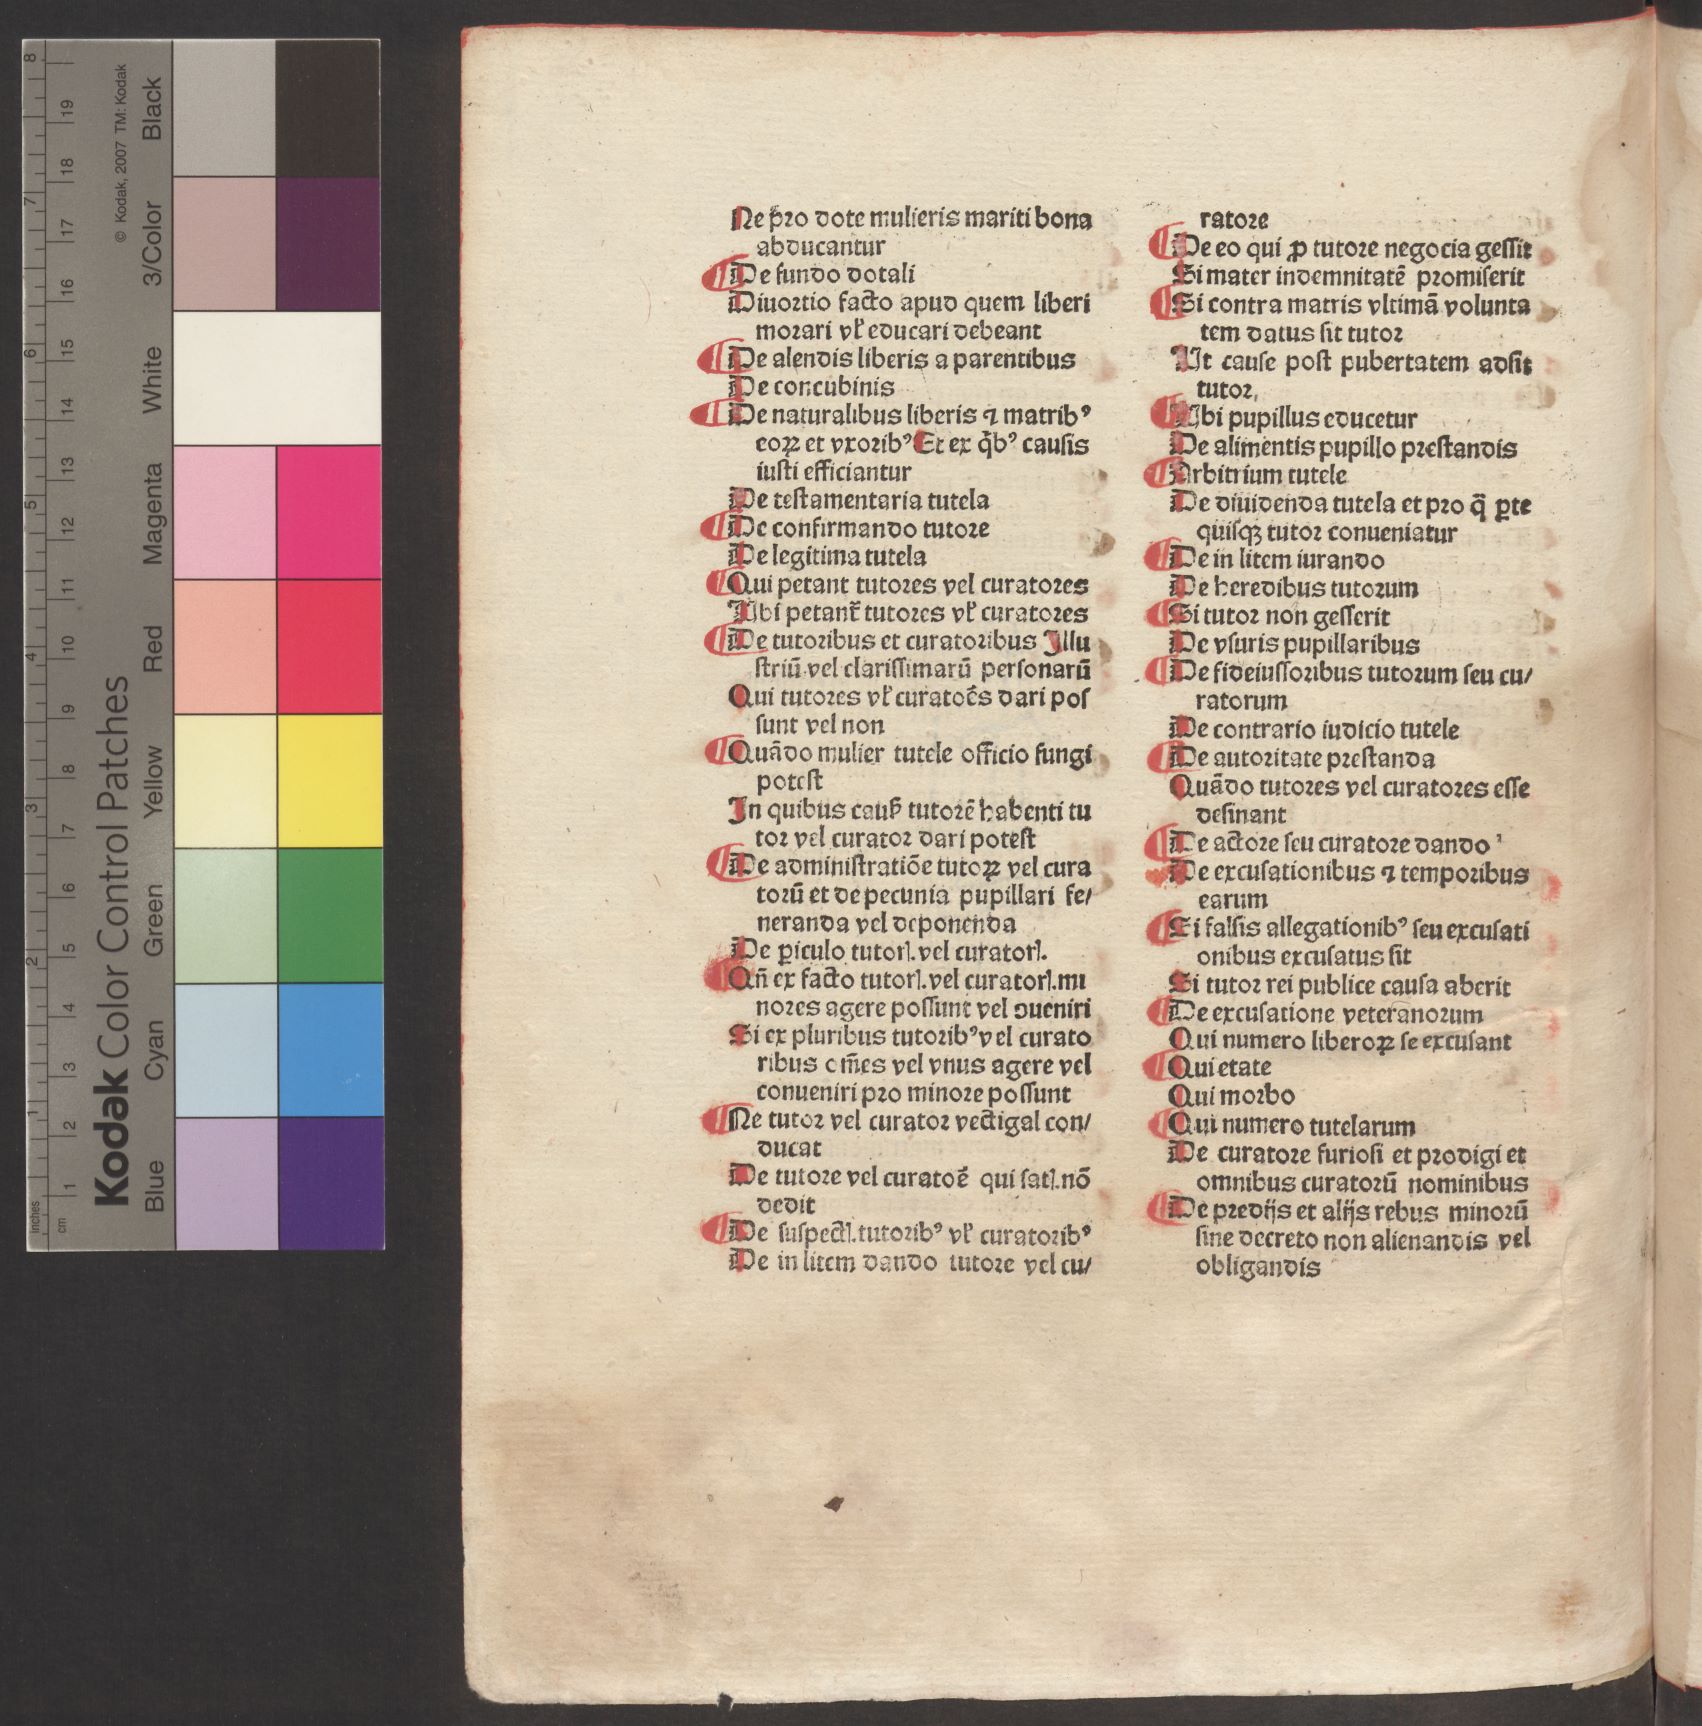 Ne pro dote mulieris mariti bona
abducantur
De fundo dotali
Diuortio facto apud quem liberi
morari vľ educari debeant
De alendis liberis a parentibus
De concubinis
De naturalibus liberis ⁊ matribꝰ
eoꝝ et vxoribꝰ Et ex q̄bꝰ causis
iusti efficiantur
De testamentaria tutela
De confirmando tutore
De legitima tutela
Qui petant tutores vel curatores
Ubi petant᷑ tutores vľ curatores
De tutoribus et curatoribus Illu
striū vel clarissimarū personarū
Qui tutores vľ curatoēs dari pos
sunt vel non
Quādo mulier tutele officio fungi
potest
In quibus cauẜ tutorē habenti tu
tor vel curator dari potest
De administratiōe tutoꝝ vel cura
torū et de pecunia pupillari fe/
neranda vel deponenda
De ꝑiculo tutorꝭ. vel curatorꝭ.
Qn̄ ex facto tutorꝭ. vel curatorꝭ. mi
nores agere possunt vel ꝯueniri
Si ex pluribus tutoribꝰ vel curato
ribus om̄es vel vnus agere vel
conueniri pro minore possunt
Ne tutor vel curator vectigal con/
ducat
De tutore vel curatoē qui satꝭ. nō
dedit
De suspectꝭ. tutoribꝰ vľ curatoribꝰ
De in litem dando tutore vel cu/
ratore
De eo qui ꝓ tutore negocia gessit
Si mater indemnitatē promiserit
Si contra matris vltimā volunta
tem datus sit tutor
Ut cause post pubertatem adsit
tutor
Ubi pupillus educetur
De alimentis pupillo prestandis
Arbitrium tutele
De diuidenda tutela et pro q̄ ꝑte
quisqꝫ tutor conueniatur
De in litem iurando
De heredibus tutorum
Si tutor non gesserit
De vsuris pupillaribus
De fideiussoribus tutorum seu cu/
ratorum
De contrario iudicio tutele
De autoritate prestanda
Quādo tutores vel curatores esse
desinant
De actore seu curatore dando
De excusationibus ⁊ temporibus
earum
Si falsis allegationibꝰ seu excusati
onibus excusatus sit
Si tutor rei publice causa aberit
De excusatione veteranorum
Qui numero liberoꝝ se excusant
Qui etate
Qui morbo
Qui numero tutelarum
De curatore furiosi et prodigi et
omnibus curatorū nominibus
De predijs et alijs rebus minorū
sine decreto non alienandis vel
obligandis
Kodak Color Control Patches
© Kodak, 2007 TM: Kodak
Blue Cyan Green Yellow Red Magenta White 3/Color Black
inches 1 2 3 4 5 6 7 8
cm 1 2 3 4 5 6 7 8 9 10 11 12 13 14 15 16 17 18 19